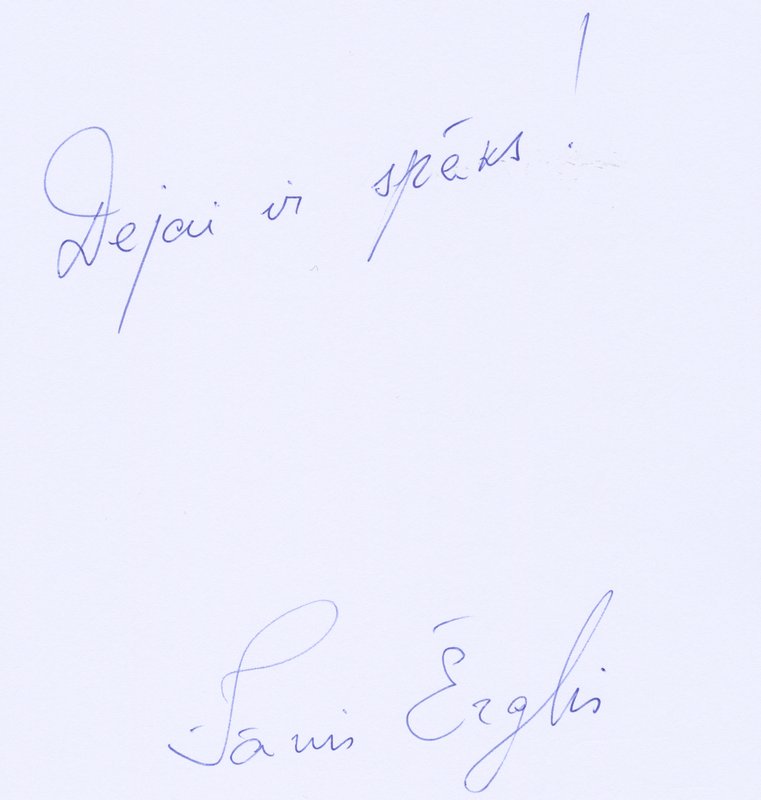 Dejai ir spēks!
Jānis Ērglis